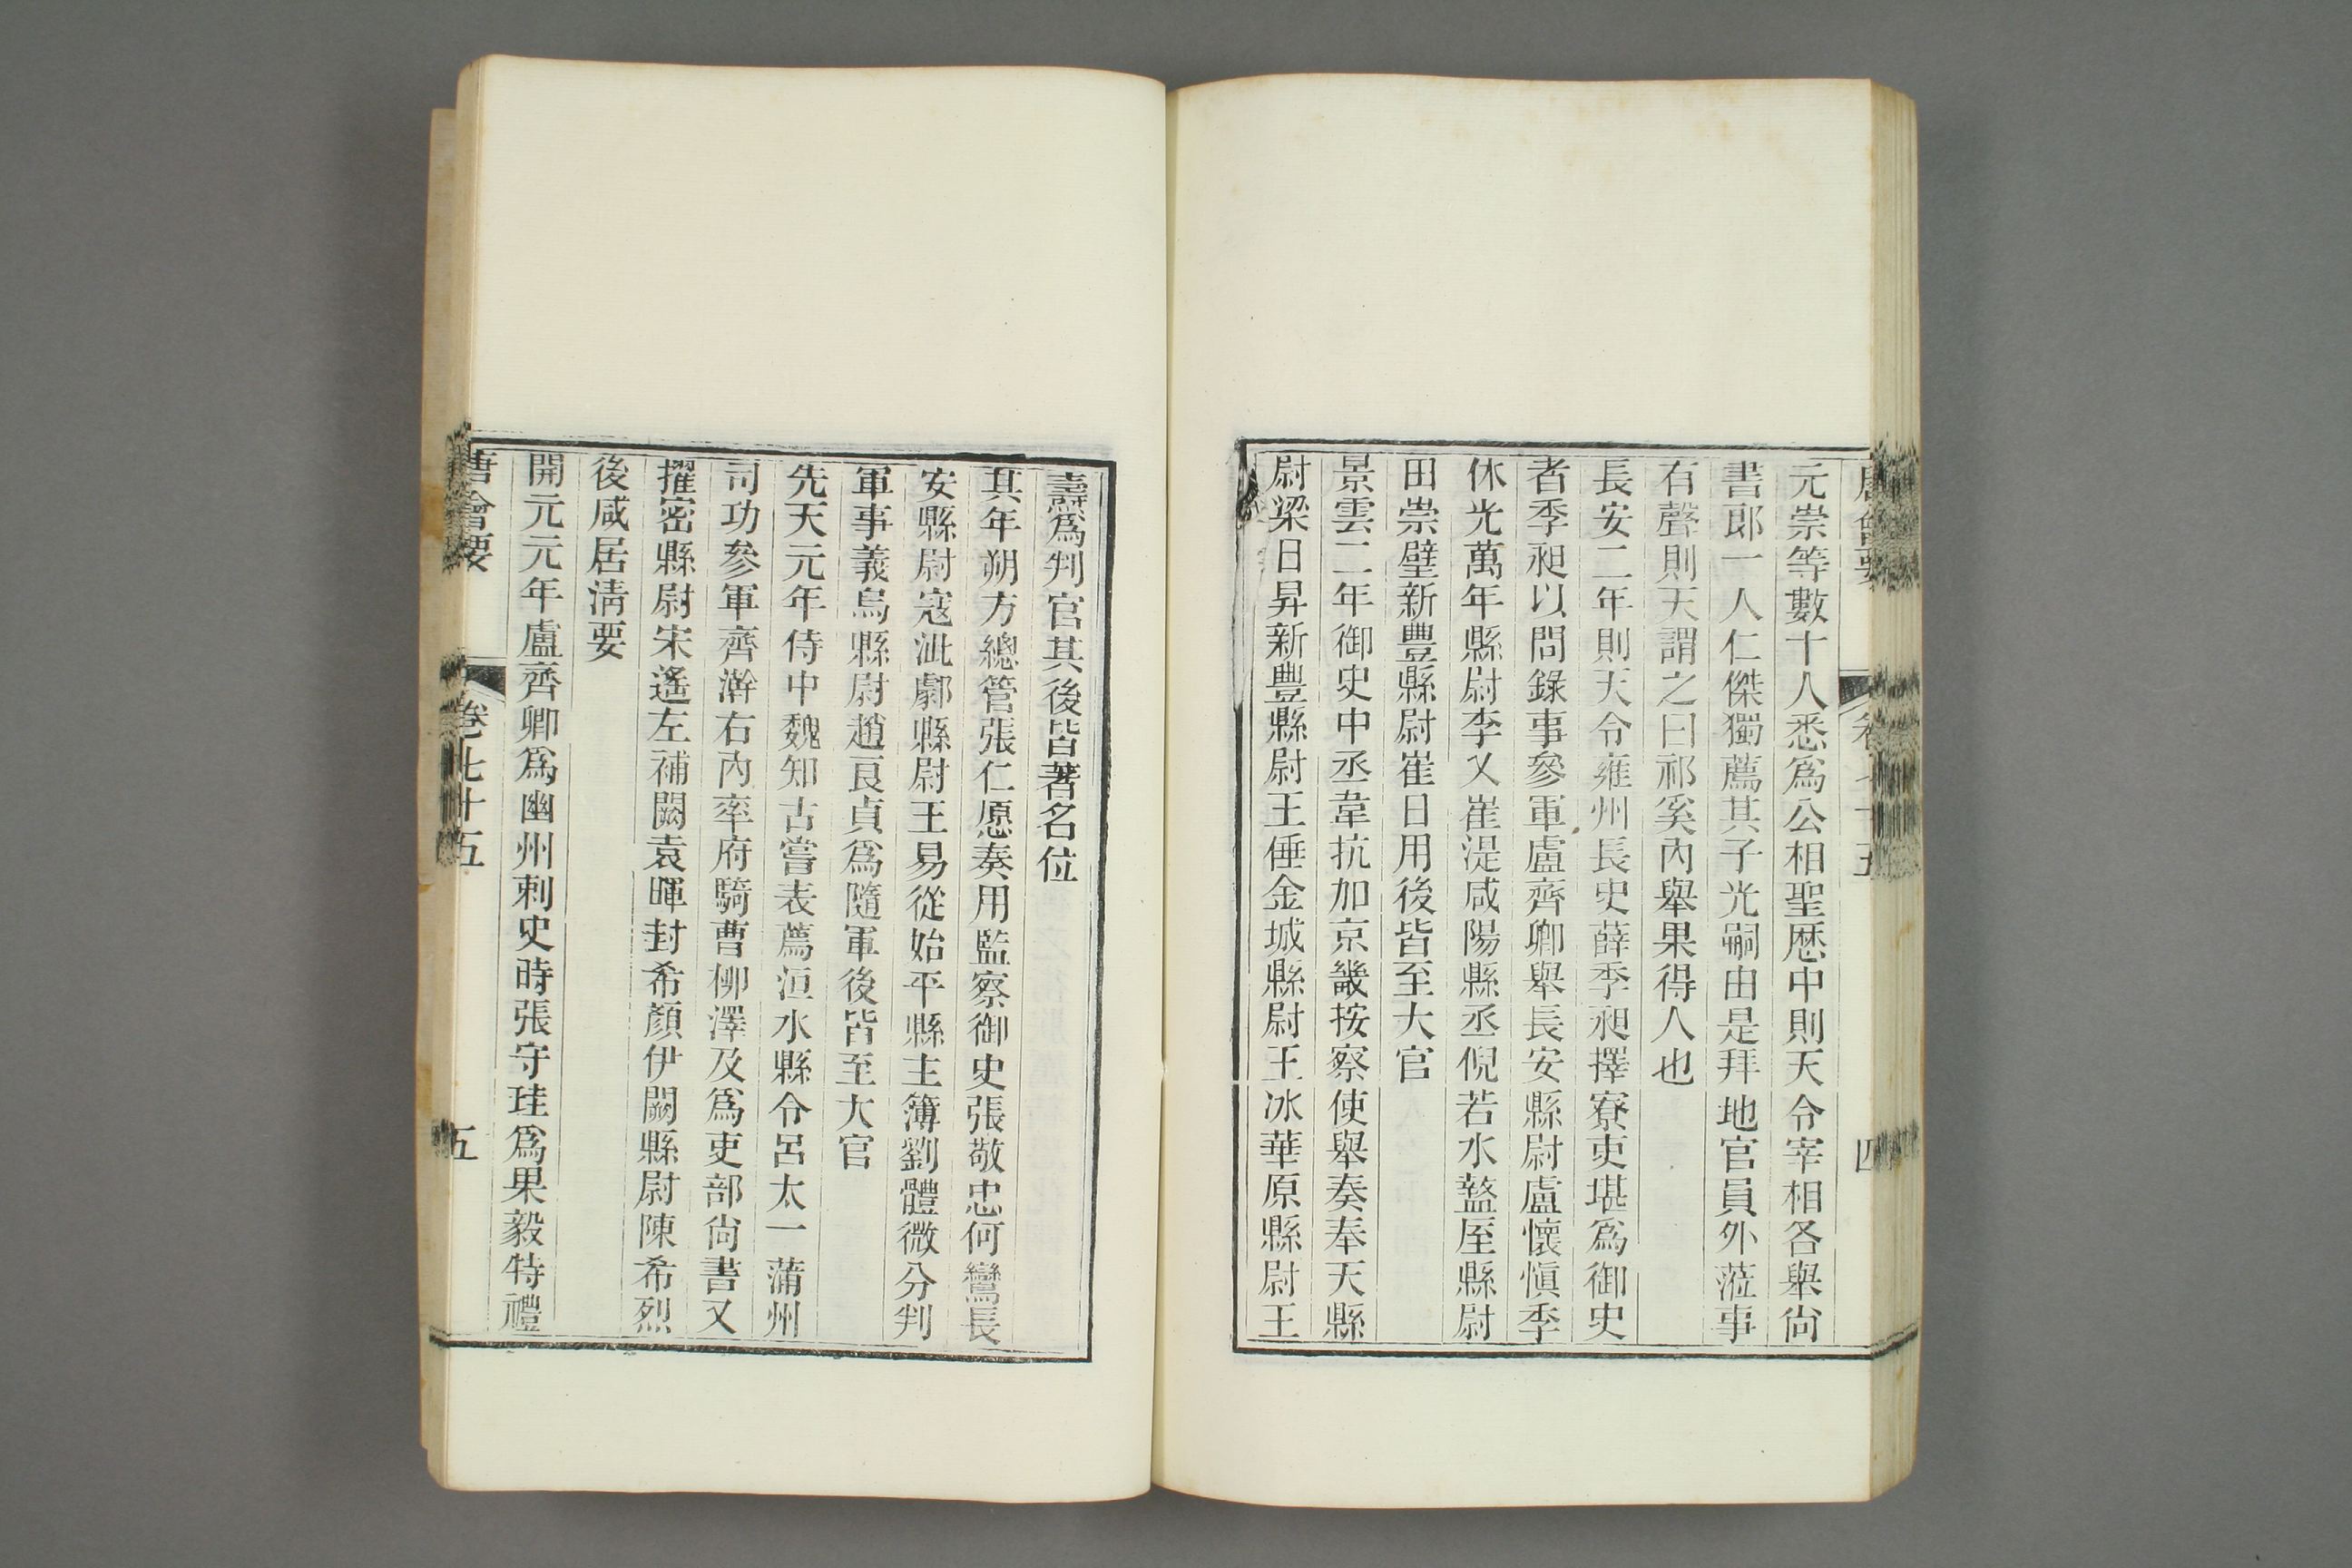 元崇等數十人悉爲公相聖歴中則天令宰相各舉尙
書郎一人仁傑獨薦其子光嗣由是拜地官員外蒞事
有聲則天謂之曰祁奚內舉果得人也
長安二年則天令雍州長史薛季昶擇寮吏堪爲御史
者季昶以問錄事參軍盧齊卿舉長安縣尉盧懷愼季
休光萬年縣尉李乂崔湜咸陽縣丞倪若水盩厔縣尉
田崇璧新豐縣尉崔日用後皆至大官
景雲二年御史中丞韋抗加京畿按察使舉奏奉天縣
尉梁日昇新豐縣尉王倕金城縣尉王冰華原縣尉王
燾爲判官其後皆著名位
其年朔方總管張仁愿奏用監察御史張敬忠何鸞長
安縣尉寇泚鄠縣尉王易從始平縣主簿劉體微分判
軍事義烏縣尉趙良貞爲隨軍後皆至大官
先天元年侍中魏知古嘗表薦洹水縣令呂太一蒲州
司功參軍齊澣右內率府騎曹柳澤及爲吏部尙書又
擢密縣尉宋遙左補闕袁暉封希顏伊闕縣尉陳希烈
後咸居淸要
開元元年盧齊卿爲幽州刺史時張守珪爲果毅特禮
唐會要 卷七十五 五